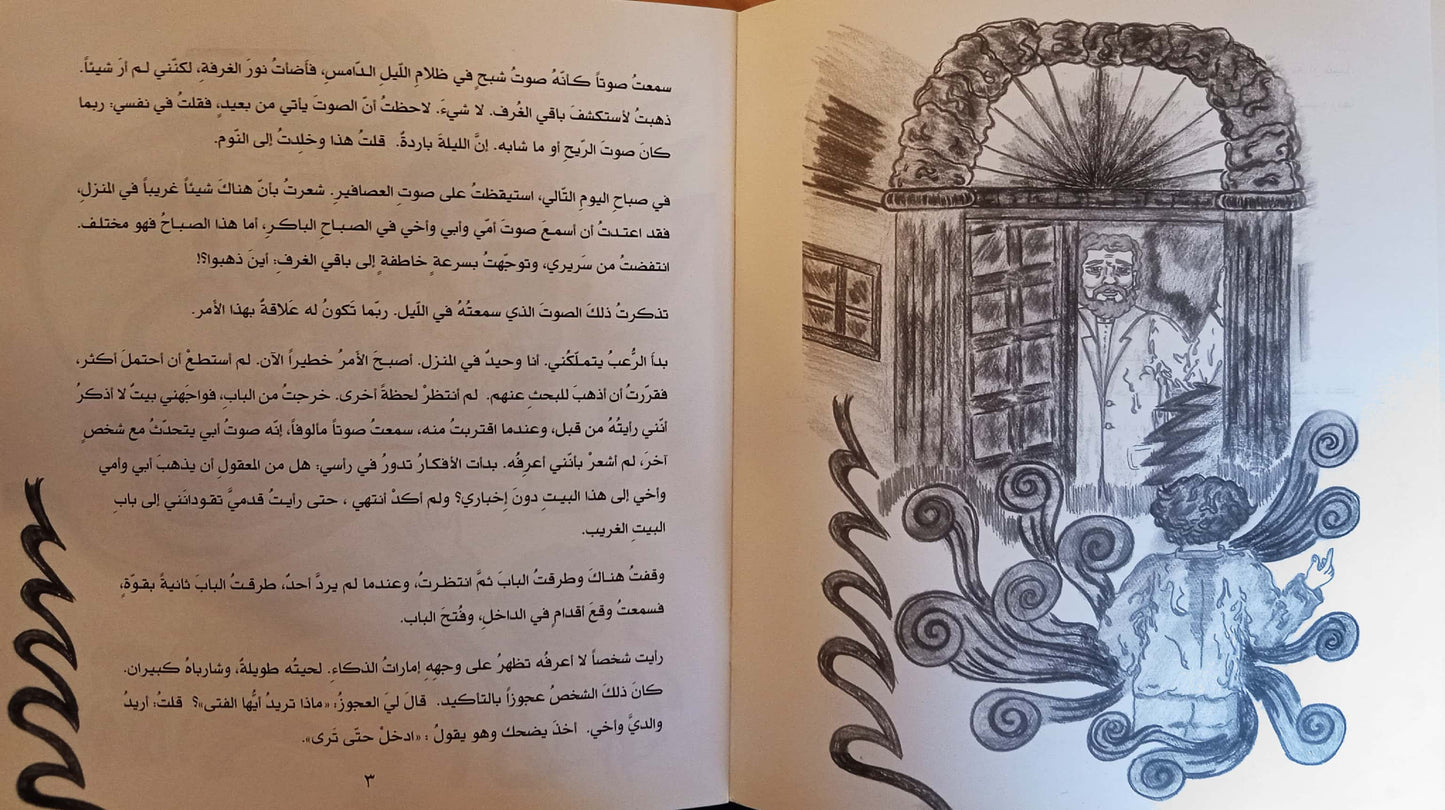 سمعتُ صوتاً كأنّهُ صوتُ شبحٍ في ظلامِ اللّيلِ الدّامسِ، فأضأتُ نورَ الغرفةِ، لكنّني لم أرَ شيئاً.
ذهبتُ لأستكشفَ باقي الغُرف. لا شيءَ. لاحظتُ أنّ الصوتَ يأتي من بعيدٍ، فقلتُ في نفسي: ربما
كانَ صوتَ الرّيحِ أو ما شابه. إنَّ الليلةَ باردةٌ. قلتُ هذا وخلِدتُ إلى النّوم.
في صباحِ اليومِ التّالي، استيقظتُ على صوتِ العصافيرِ. شعرتُ بأنّ هناكَ شيئاً غريباً في المنزلِ،
فقد اعتدتُ أن أسمعَ صوتَ أمّي وأبي وأخي في الصباحِ الباكرِ، أما هذا الصباحُ فهو مختلف.
انتفضتُ من سَريري، وتوجّهتُ بسرعةٍ خاطفةٍ إلى باقي الغرفِ: أينَ ذهبوا؟!
تذكرتُ ذلكَ الصوتَ الذي سمعتُهُ في اللّيل. ربّما تَكونُ له عَلاقةٌ بهذا الأمر.
بدأ الرُّعبُ يتملّكُني. أنا وحيدٌ في المنزل. أصبحَ الأمرُ خطيراً الآن. لم أستطعْ أن أحتملَ أكثر،
فقرّرتُ أن أذهبَ للبحثِ عنهم. لم أنتظرْ لحظةً أخرى. خرجتُ من البابِ، فواجَهني بيتٌ لا أذكرُ
أنّني رأيتُهُ من قبل، وعندما اقتربتُ منه، سمعتُ صوتاً مألوفاً، إنّه صوتُ أبي يتحدّثُ مع شخصٍ
آخرَ، لم أشعرْ بأنّني أعرفُه. بدأت الأفكارُ تدورُ في رأسي: هل من المعقولِ أن يذهبَ أبي وأمي
وأخي إلى هذا البيتِ دونَ إخباري؟ ولم أكدْ أنتهي ، حتى رأيتُ قدميَّ تقودانَني إلى بابِ
البيتِ الغريب.
وقفتُ هناكَ وطرقتُ البابَ ثمَّ انتظرتُ، وعندما لم يردَّ أحدٌ، طرقتُ البابَ ثانيةً بقوّةٍ،
فسمعتُ وقعَ أقدامٍ في الداخلِ، وفُتحَ الباب.
رأيت شخصاً لا أعرفُه تظهرُ على وجههِ إماراتُ الذكاءِ. لحيتُه طويلةٌ، وشارباهُ كبيران.
كانَ ذلكَ الشخصُ عجوزاً بالتأكيد. قالَ ليَ العجوزُ: «ماذا تريدُ أيُّها الفتى»؟ قلتُ: أريدُ
والديَّ وأخي. أخذَ يضحك وهو يقولُ : «ادخلْ حتّى تَرى».
٣